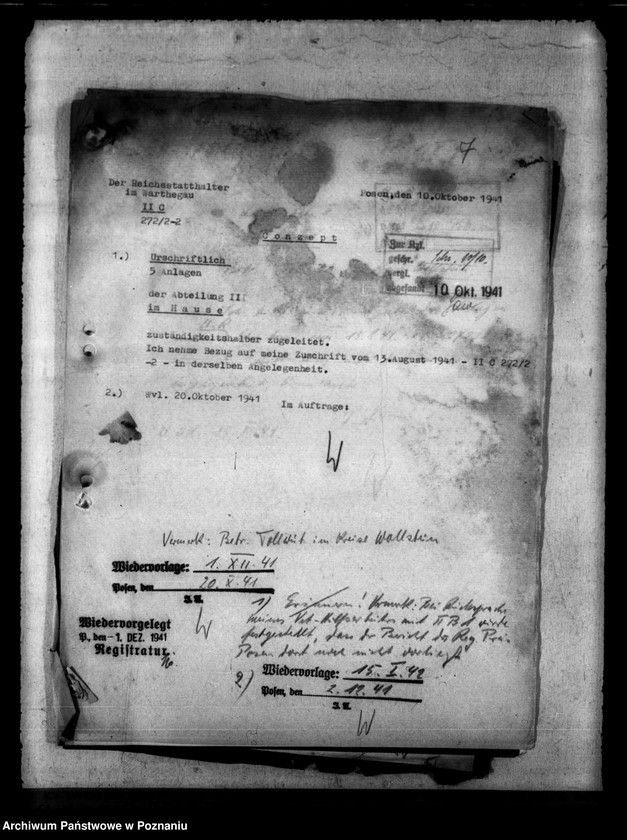 7
Der Reichsstatthalter
im Warthegau
II C
272/2-2
Posen, den 10.Oktober 1941
Conzept
Zur Kzl.
geschr.
vergl.
abgesandt 10 Okt. 1941
1.) Urschriftlich
5 Anlagen
der Abteilung II
im Hause
zuständigkeitshalber zugeleitet.
Ich nehme Bezug auf meine Zuschrift vom 13.August 1941 - II C 272/2
-2 - in derselben Angelegenheit.
2.) wvl. 20.Oktober 1941
Im Auftrage:
W
Vermerk: Betr. Tollwut im Kreise Wollstein
Wiedervorlage: 1. XII. 41
Posen, den 20. X. 41
I.A.
W
Wiedervorgelegt
P., den -1. DEZ. 1941
Registratur
1) Erinnern! Vermerk: Bei Rücksprache
meines mit II B wurde
festgestellt, dass der Bericht des Reg. Präs.
Posen dort noch nicht vorliegt
2) Wiedervorlage: 15. I. 42
Posen, den 2. 12. 41
I.A.
W
Archiwum Państwowe w Poznaniu